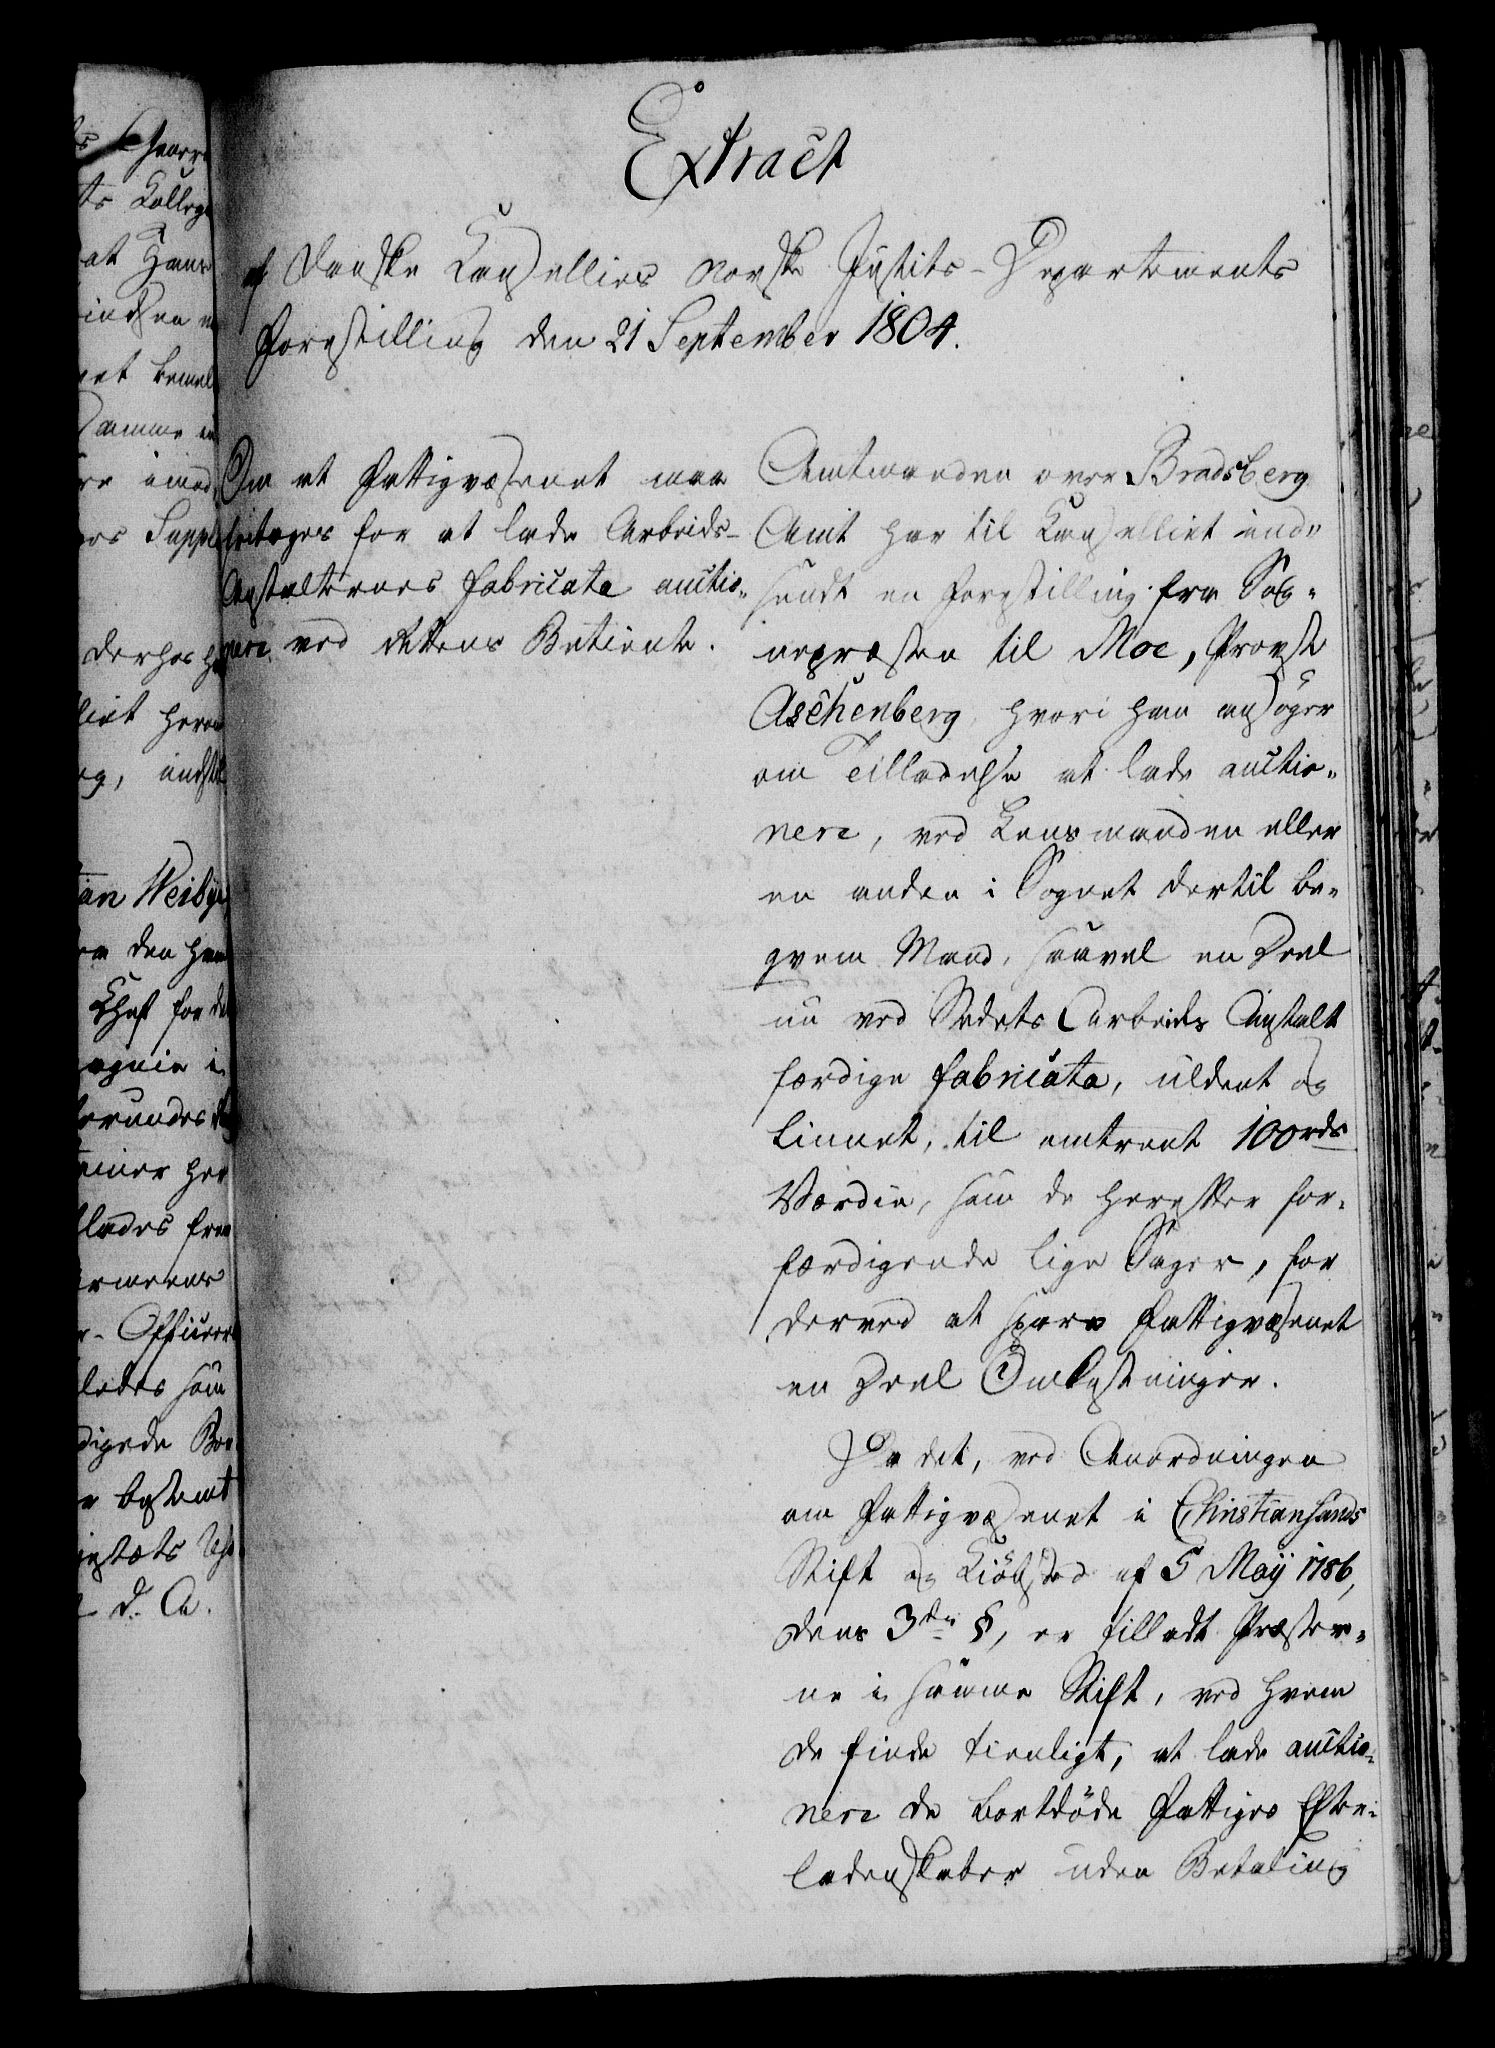 Extract
af Danske Cancelliets norske Justits-Departements
Forestilling den 21 September 1804.
Om at Fattigvæsenet maa
fritages for at lade Arbeids-
Anstalternes fabricata auctio-
nere ved Rettens Betiente.
Amtmanden over Bradsberg
Amt har til Cancelliet ind-
sendt en Forestilling fra Sog-
nepræsten til Moe, Provst
Aschenberg, hvori han ansöger
om Tilladelse at lade auctio-
nere, ved Lensmanden eller
en anden i Sognet dertil be-
qvem Mand, saavel en Deel
nu ved Stedets Arbeids Anstalt
færdige fabricata, uldent og
linnet, til omtrent 100 rds
Værdie, som de herefter for-
færdigende lige Sager, for
derved at spare Fattigvæsenet
en Deel Omkostninger.
Da det, ved Anordningen
om Fattigvæsenet i Christiansands
Stift og Kiöbsted af 5 May 1786,
dens 3die §, er tilladt Præster-
ne i samme Stift, ved hvem
de finde tienligt, at lade auctio-
nere de bortdöde Fattiges Efter-
ladenskaber uden Betaling
Kolleg
at Hans
derhos
Weibye
den
Chef for
Officerer
ledes som
bestemt
d. A.